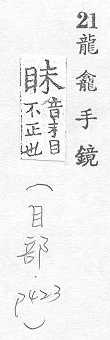 21龍龕手鏡
眜音末目
不正也
(目部．p423)